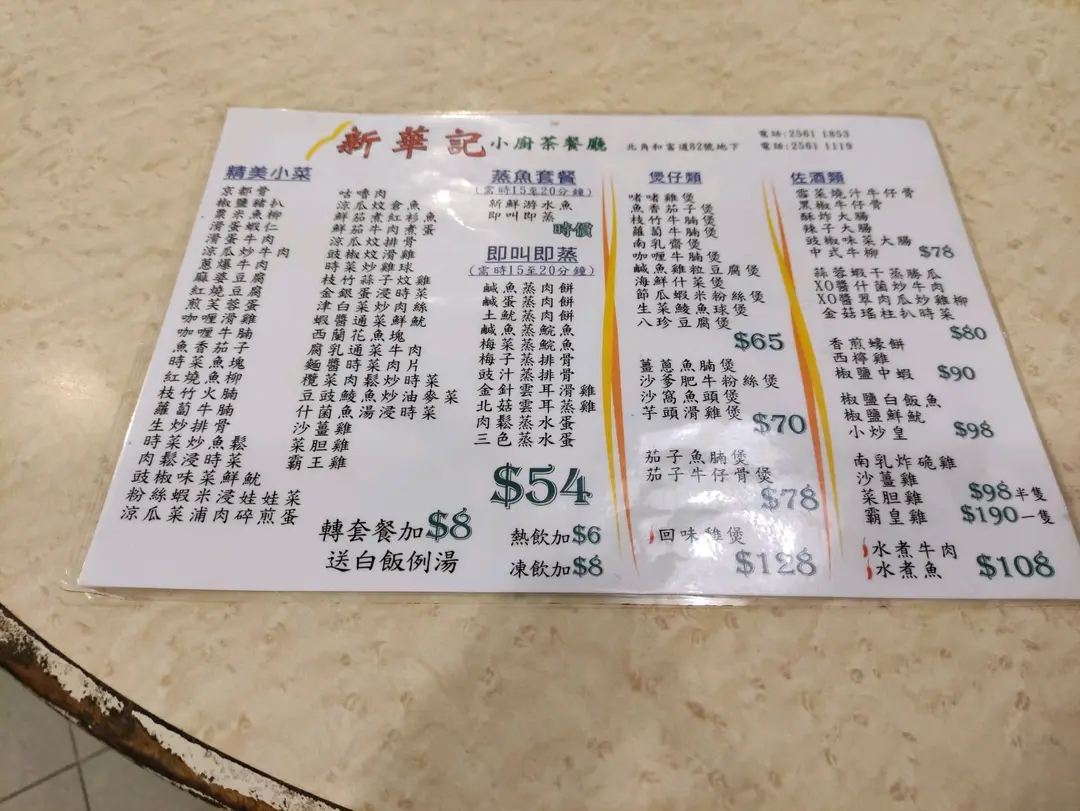 新華記小廚茶餐廳 北角和富道82號地下
電話:2561 1853
電話:2561 1119
精美小菜
京都骨
椒鹽豬扒
粟米魚柳
滑蛋蝦仁
滑蛋牛肉
涼瓜炒牛肉
蔥爆牛肉
麻婆豆腐
紅燒豆腐
煎芙蓉蛋
咖喱滑雞
咖喱牛腩
魚香茄子
時菜魚塊
紅燒魚柳
枝竹火腩
蘿蔔牛腩
生炒排骨
時菜炒魚鬆
肉鬆浸時菜
豉椒味菜鮮魷
粉絲蝦米浸娃娃菜
涼瓜菜浦肉碎煎蛋
咕嚕肉
涼瓜炆倉魚
鮮茄煮紅衫魚
鮮茄牛肉煮蛋
涼瓜炆排骨
豉椒炆滑雞
時菜炒雞球
枝竹蒜子炆雞
金銀蛋浸時菜
津白菜炒肉絲
蝦醬通菜鮮魷
西蘭花魚塊
腐乳通菜牛肉
麵醬時菜肉片
欖菜肉鬆炒時菜
豆豉鯪魚炒油麥菜
什菌魚湯浸時菜
沙薑雞
菜胆雞
霸王雞
轉套餐加$8
送白飯例湯
蒸魚套餐
(需時15至20分鐘)
新鮮游水魚
即叫即蒸
時價
即叫即蒸
(需時15至20分鐘)
鹹魚蒸肉餅
鹹蛋蒸肉餅
土魷蒸肉餅
鹹魚蒸鯇魚
梅菜蒸鯇魚
梅子蒸排骨
豉汁蒸排骨
金針雲耳滑雞
北菇雲耳蒸雞
肉鬆蒸水蛋
三色蒸水蛋
$54
熱飲加$6
凍飲加$8
煲仔類
啫啫雞煲
魚香茄子煲
枝竹牛腩煲
蘿蔔牛腩煲
南乳齋煲
咖喱牛腩煲
鹹魚雞粒豆腐煲
海鮮什菜煲
節瓜蝦米粉絲煲
生菜鯪魚球煲
八珍豆腐煲
$65
薑蔥魚腩煲
沙爹肥牛粉絲煲
沙窩魚頭煲
芋頭滑雞煲
$70
茄子魚腩煲
茄子牛仔骨煲
$78
回味雞煲
$128
佐酒類
雪菜燒汁牛仔骨
黑椒牛仔骨
酥炸大腸
辣子大腸
豉椒味菜大腸
中式牛柳 $78
蒜蓉蝦干蒸勝瓜
XO醬什菌炒牛肉
XO醬翠肉瓜炒雞柳
金菇瑤柱扒時菜
$80
香煎蠔餅
西檸雞
椒鹽中蝦 $90
椒鹽白飯魚
椒鹽鮮魷
小炒皇 $98
南乳炸硊雞
沙薑雞
菜胆雞 $98半隻
霸皇雞 $190一隻
水煮牛肉
水煮魚 $108